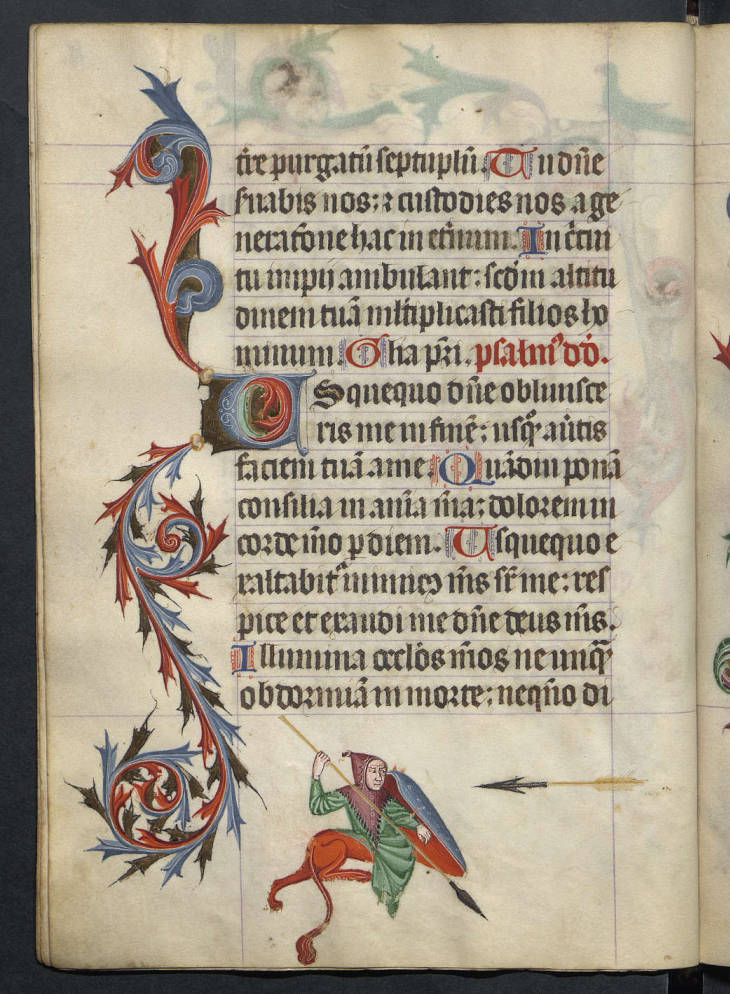 tr̄e purgatū septuplū. Tu dn̄e
ſuabis nos: ⁊ custodies nos a ge
neratōne hac in etn̄um. In c̄cui
tu impii ambulant: scdm̄ altitu
dinem tuā ml̄tiplicasti filios ho
minum. Gl̄ia pr̄i. psalm̄ dd̄.
USquequo dn̄e obliuisce
ris me in finē: usqꝫ au̇tis
faciem tuā a me. Quādiu ponā
consilia in ani̅a m̄a: dolorem in
corde mō p diem. Usquequo e
xaltabit̉ inimicꝯ m̄s sr̄ me: res
pice et exaudi me dn̄e deus m̄s.
Illumina ocl̄os m̄os ne unqꝫ
obdormiā in morte: neqn̄o di